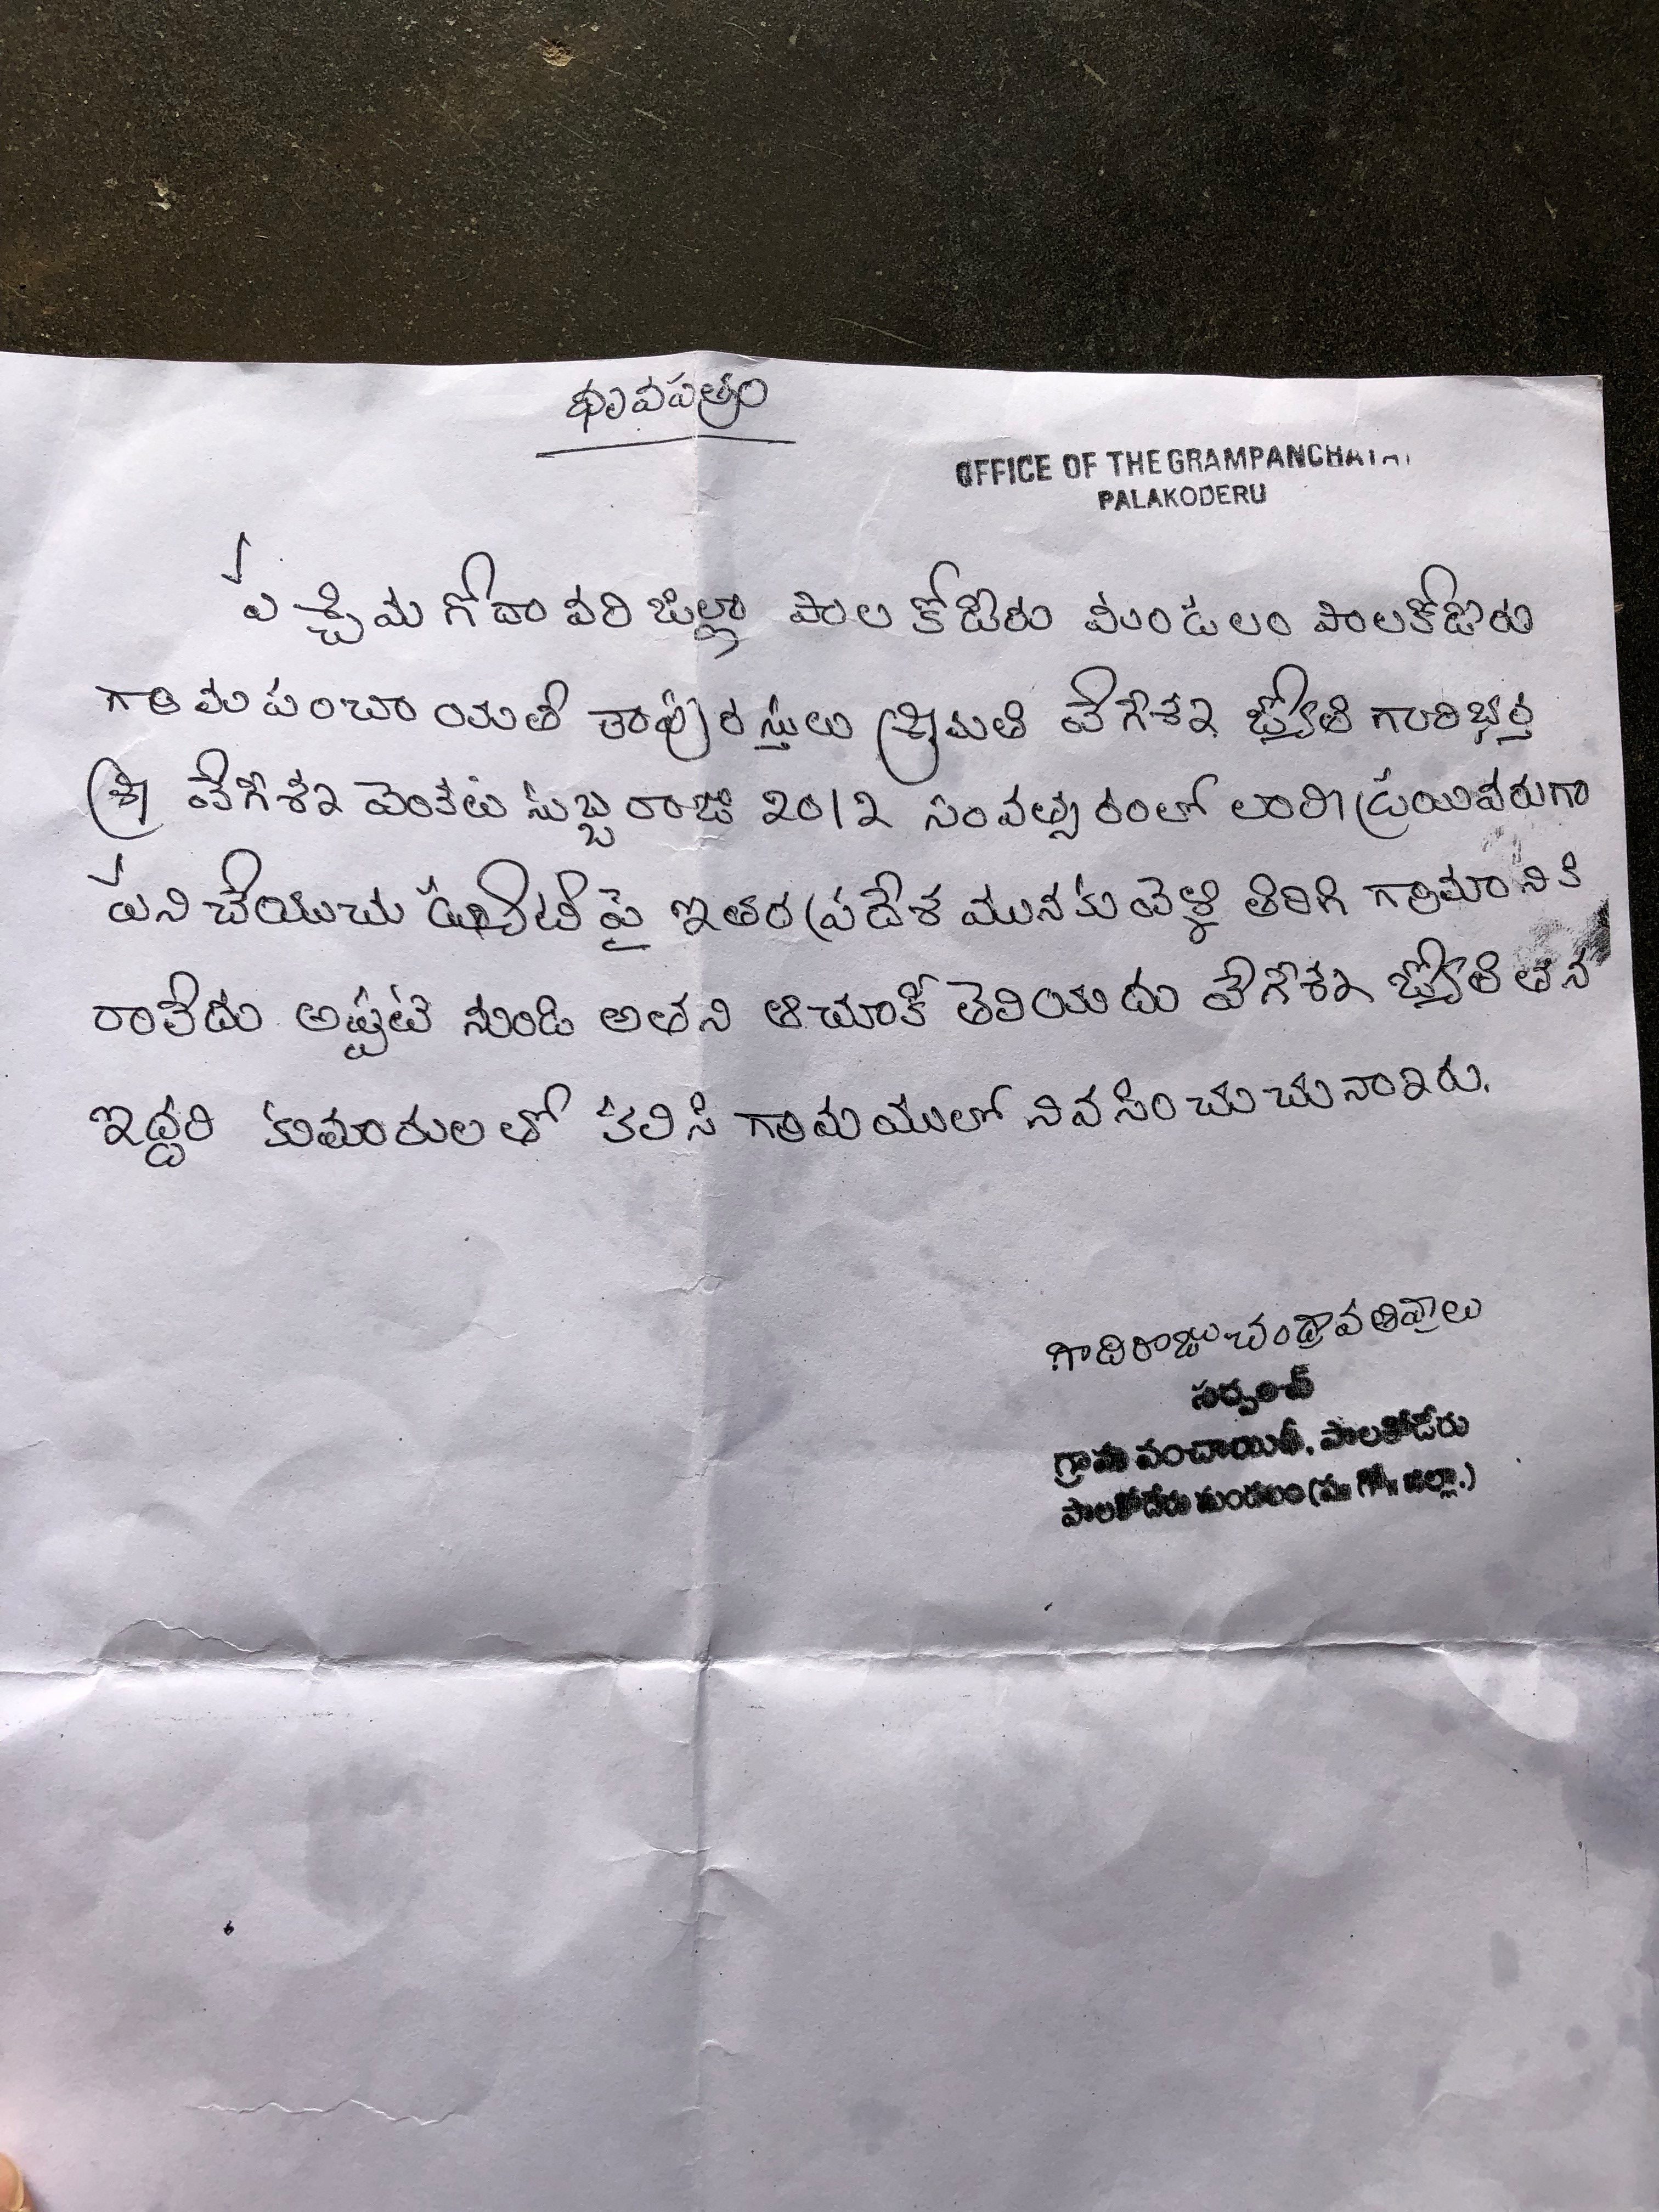 ధృవపత్రం
OFFICE OF THE GRAMPANCHAYAT
PALAKODERU
పశ్చిమ గోదావరి జిల్లా పాలకోడేరు మండలం పాలకోడేరు
గ్రామపంచాయతీ కాపురస్తులు శ్రీమతి వేగేశ్న జ్యోతి గారి భర్త
శ్రీ వేగేశ్న వెంకట సుబ్బరాజు 2012 సంవత్సరంలో లారీ డ్రయివరుగా
పని చేయుచు డ్యూటీ పై ఇతర ప్రదేశమునకు వెళ్ళి తిరిగి గ్రామానికి
రాలేదు అప్పటి నుండి అతని ఆచూకీ తెలియదు వేగేశ్న జ్యోతి తన
ఇద్దరి కుమారులతో కలిసి గ్రామములో నివసించుచున్నారు.
గాదిరాజు చంద్రావతి వ్రాలు
సర్పంచ్
గ్రామ పంచాయితీ, పాలకోడేరు
పాలకోడేరు మండలం (ప.గో. జిల్లా.)